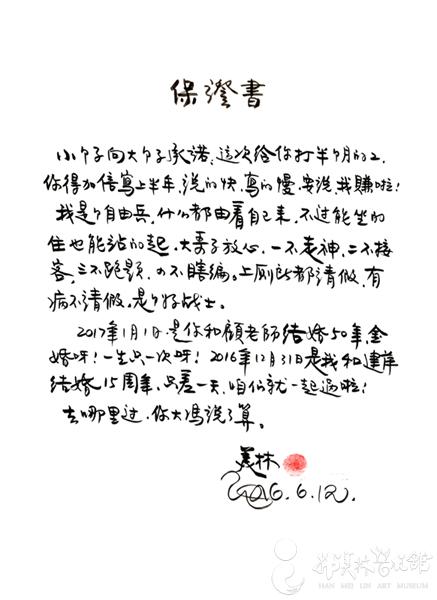 保證書
小个子向大个子承諾，這次給你打半个月的工，
你得加倍寫上半年，说的快，寫的慢，安说，我賺啦！
我是个自由兵，什么都由着自己来，不过能坐的
住也能站的起，大哥子放心，一不走神，二不接
客，三不跑题，四不瞎编。上厕所都请假，有
病不请假。是个好战士。
2017年1月1日是你和顧老師結婚50年，金
婚呀！一生只一次呀！2016年12月31日是我和建萍
結婚15周年，只差一天，咱们就一起過啦！
去哪里过，你大馮说了算。
美林
2016.6.12.
韩美林艺术館
HAN MEI LIN ART MUSEUM